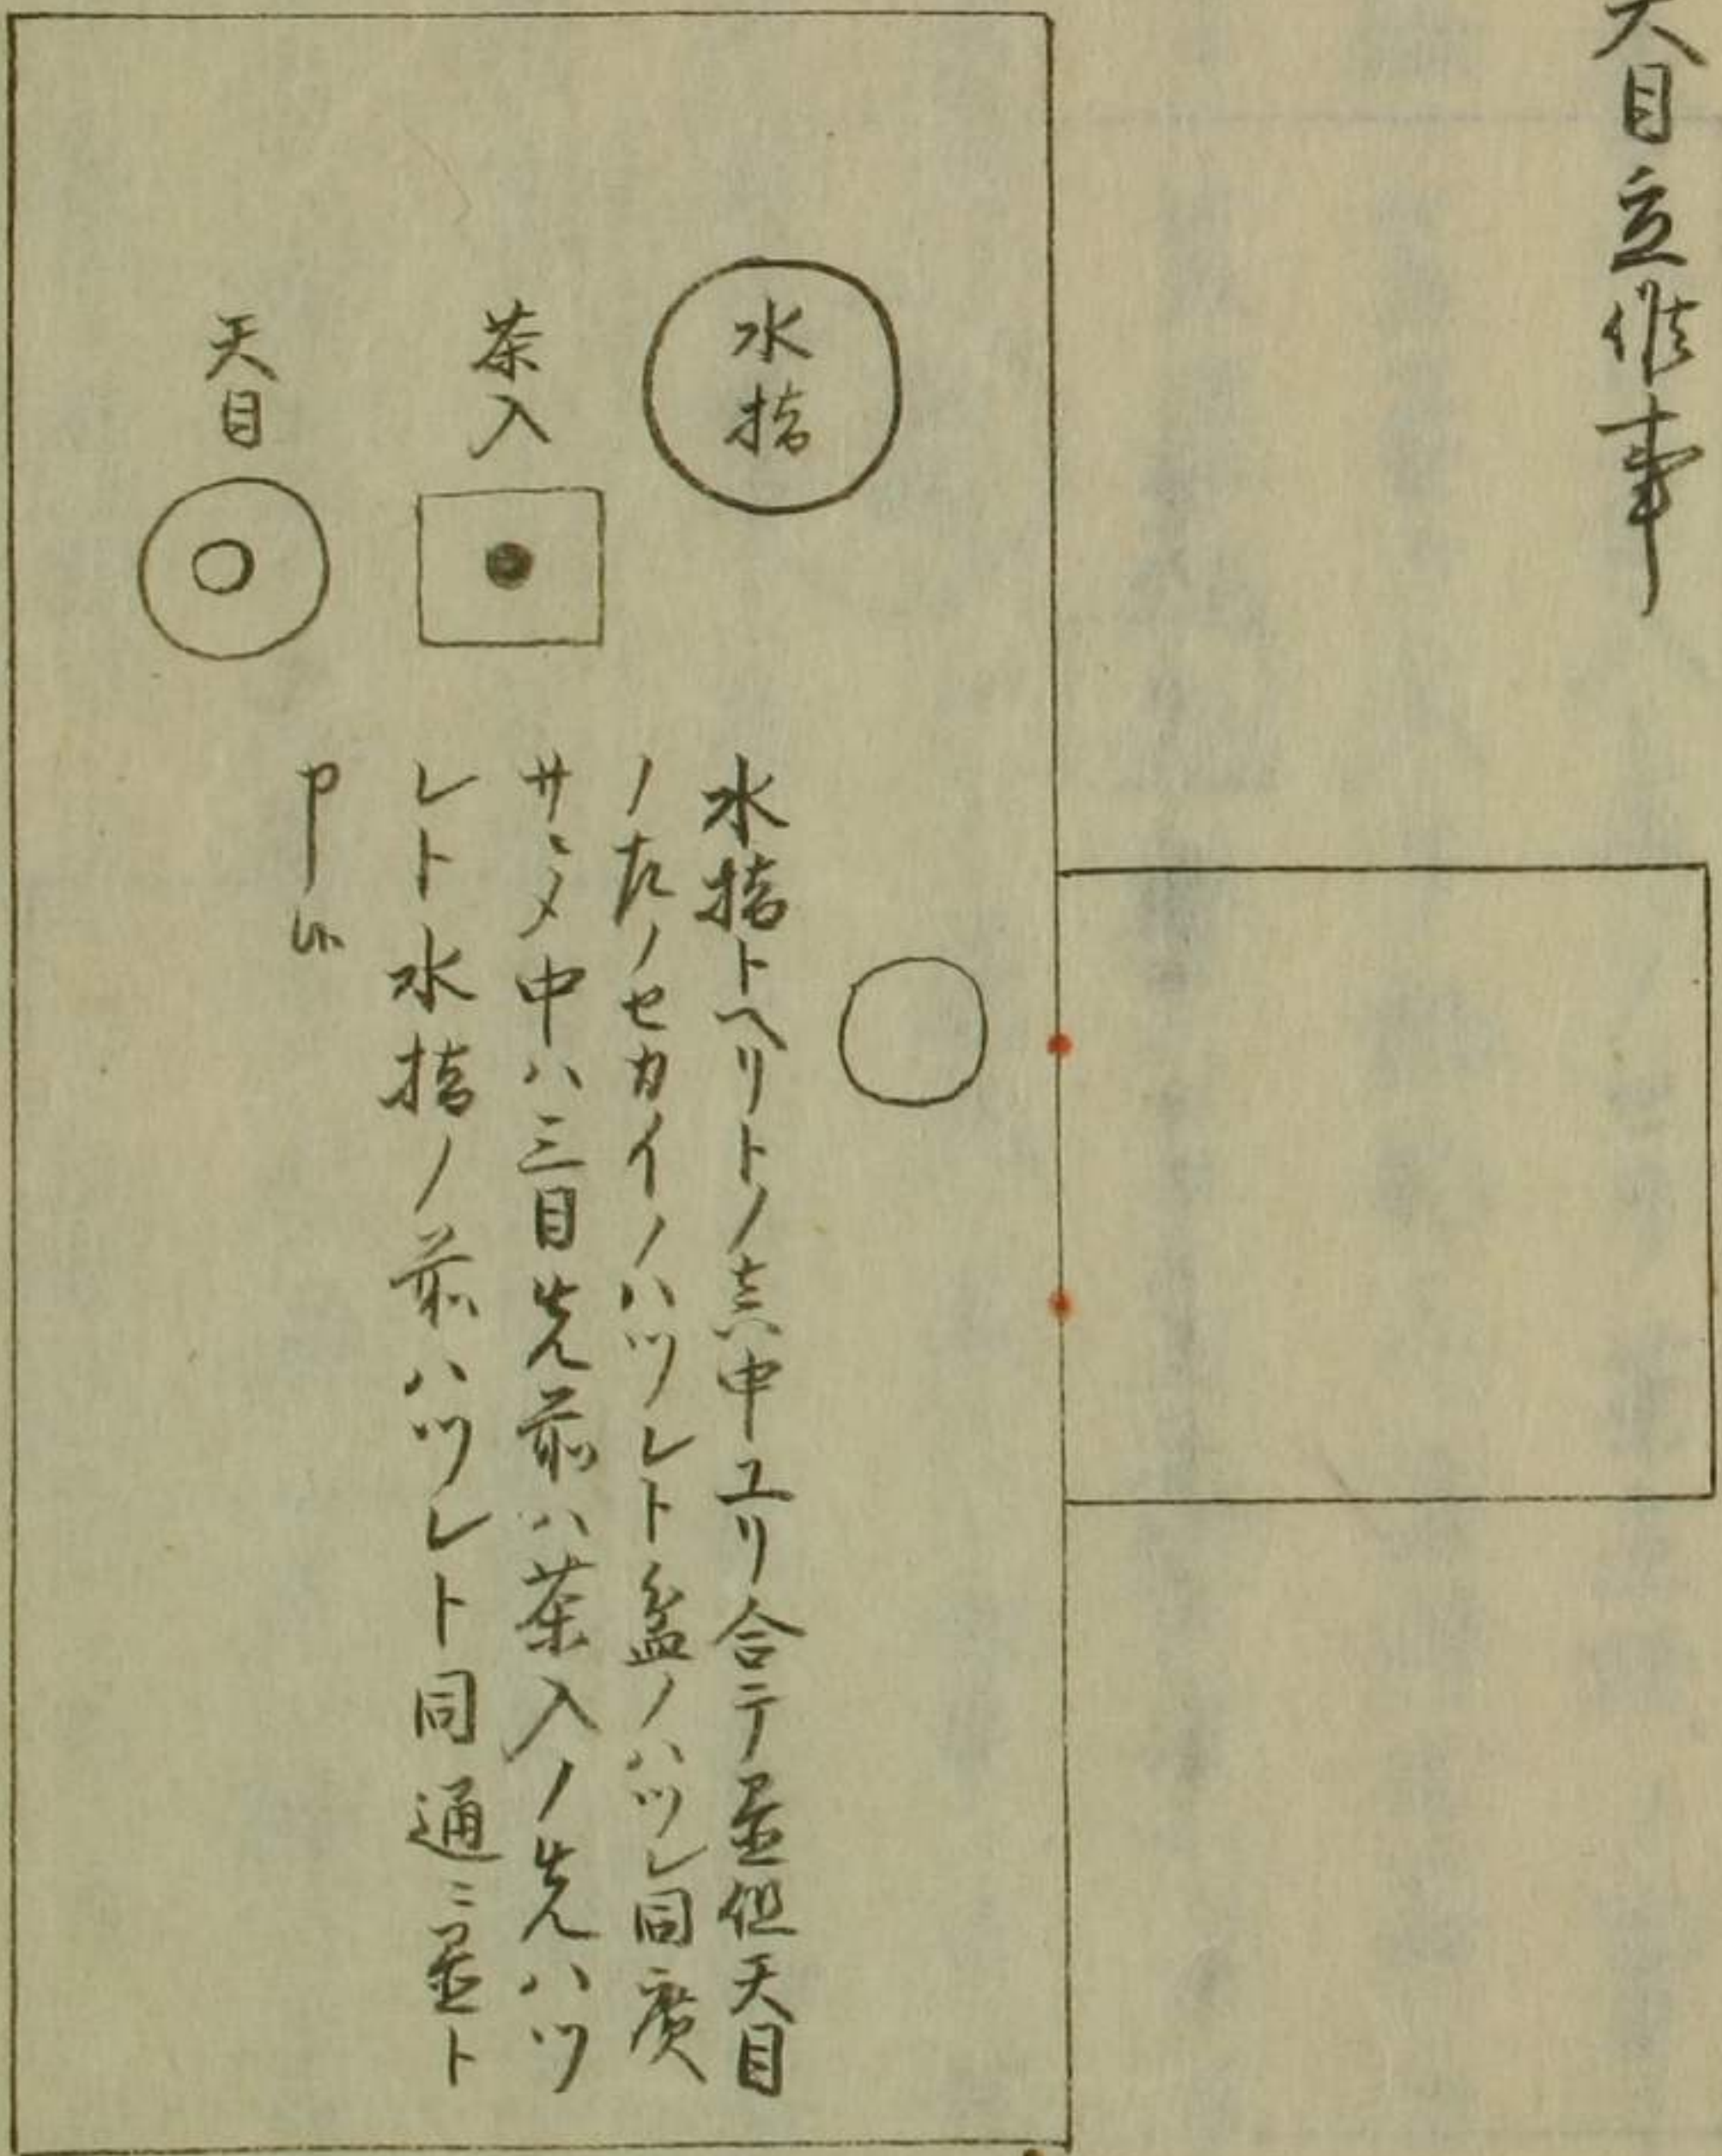 天目立作事
水指
茶入
天目
水指トヘリトノ真中ユリ合テ置但天目
ノ左ノセカイノハツレト盆ノハツレ同廣
サニメ中ハ三目先前ハ茶入ノ先ハツ
レト水指ノ前ハツレト同通ニ置ト
申